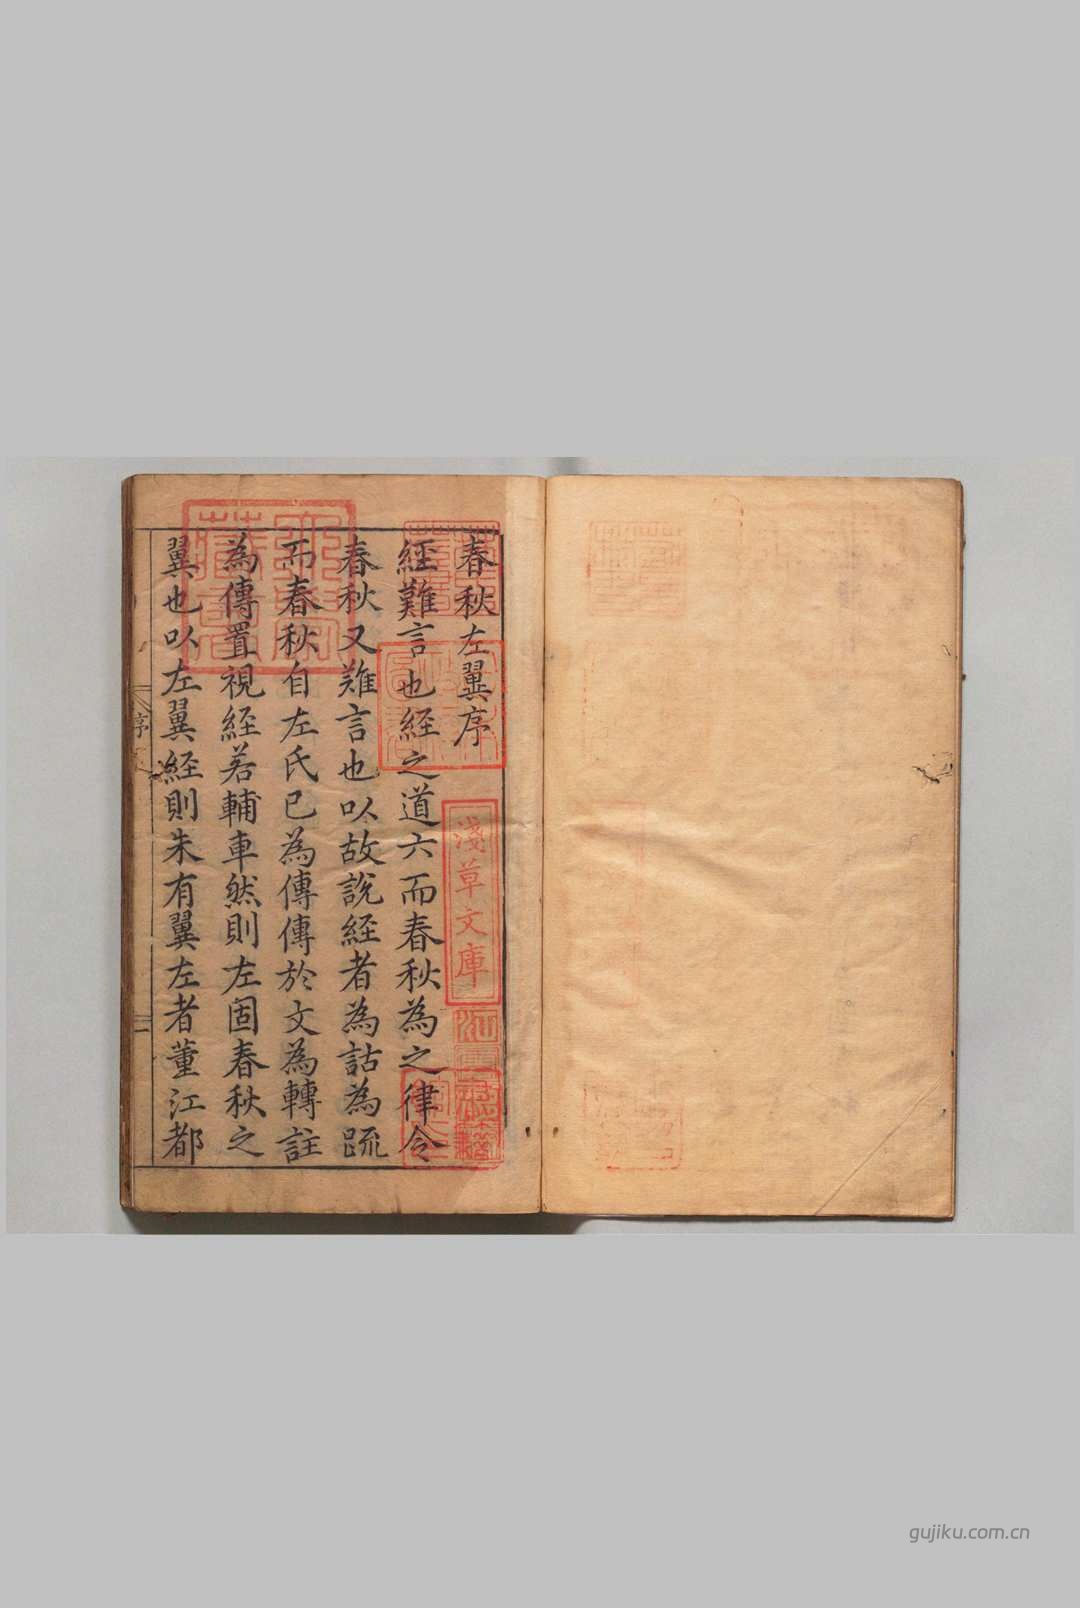 春秋左翼序
經難言也經之道六而春秋為之律令
春秋又難言也以故說經者為詁為䟽
而春秋自左氏已為傳傳於文為轉註
為傳置視經若輔車然則左固春秋之
翼也以左翼經則朱有翼左者董江都
淺草文庫
序
一
gujiku.com.cn